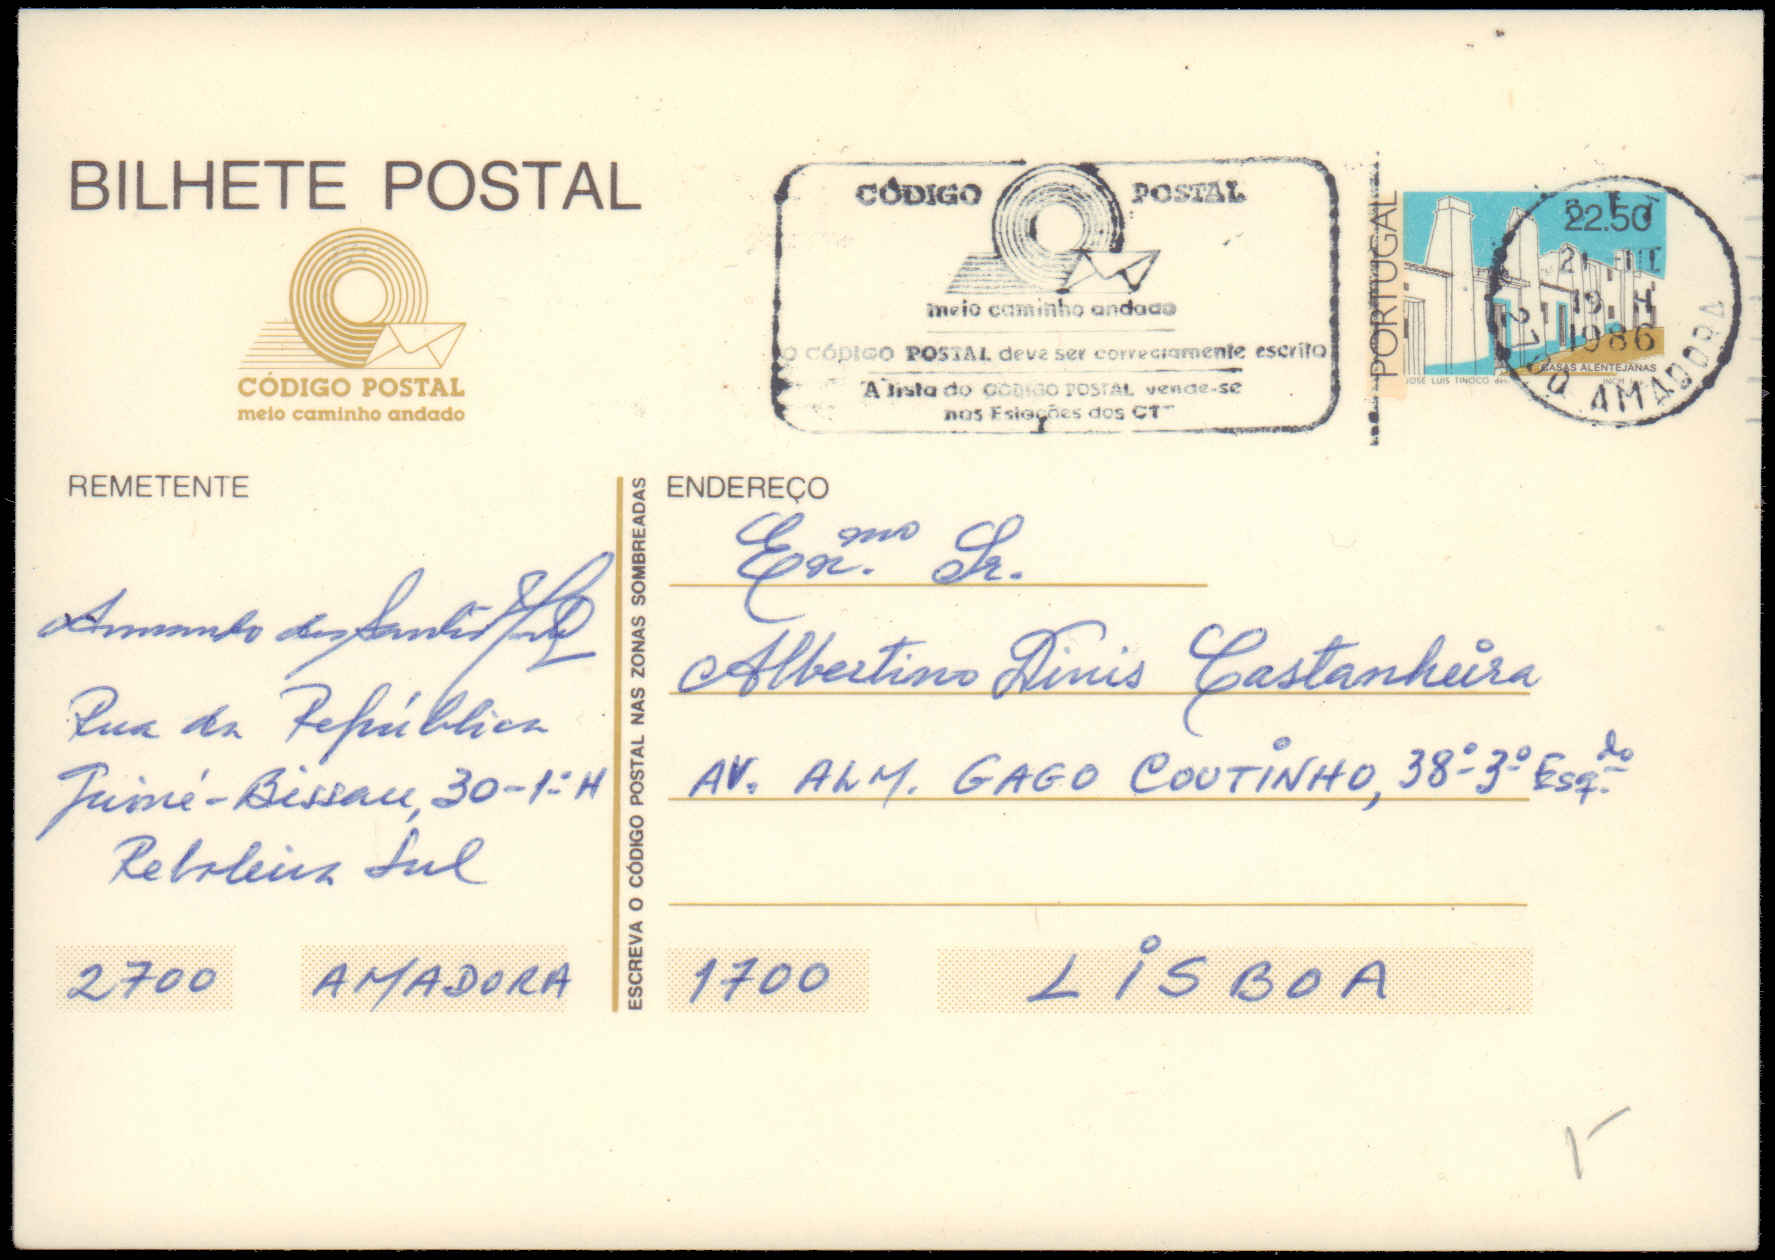 BILHETE POSTAL
CÓDIGO POSTAL
meio caminho andado
CÓDIGO POSTAL
meio caminho andado
O CÓDIGO POSTAL deve ser correctamente escrito
A lista do CÓDIGO POSTAL vende-se
nas Estações dos CTT
PORTUGAL
22.50
19 H
1986
2700 AMADORA
CASAS ALENTEJANAS
JOSÉ LUIS TINOCO
INCM
REMETENTE
Armando dos Santos
Rua da República
Guiné-Bissau, 30-1º H
Reboleira Sul
2700 AMADORA
ESCREVA O CÓDIGO POSTAL NAS ZONAS SOMBREADAS
ENDEREÇO
Ex.mo Sr.
Albertino Dinis Castanheira
AV. ALM. GAGO COUTINHO, 38º-3º Esq.do
1700 LISBOA